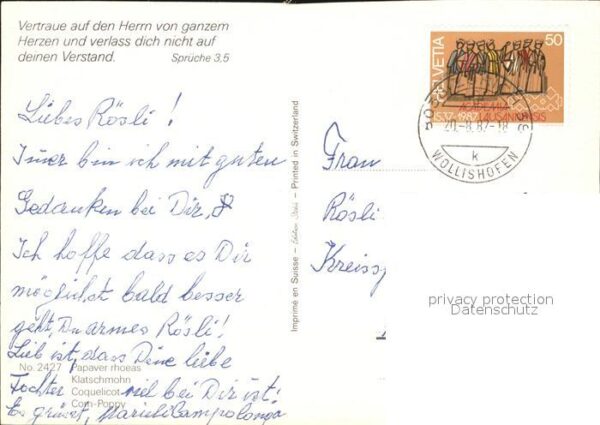 Vertraue auf den Herrn von ganzem
Herzen und verlass dich nicht auf
deinen Verstand. Sprüche 3,5
Liebes Rösli!
Imer bin ich mit guten
Gedanken bei Dir, &
Ich hoffe dass es Dir
möglichst bald besser
geht, Du armes Rösli!
Lieb ist, dass Deine liebe
Tochter viel bei Dir ist!
Es grüsst, Marieli Campolonga
No. 2427 Papaver rhoeas
Klatschmohn
Coquelicot
Corn-Poppy
Imprimé en Suisse – – Printed in Switzerland
HELVETIA
50
ACADEMIA
1537-1987 LAUSANNENSIS
20.-8.87-18
k
WOLLISHOFEN
Frau
Rösli
privacy protection
Datenschutz